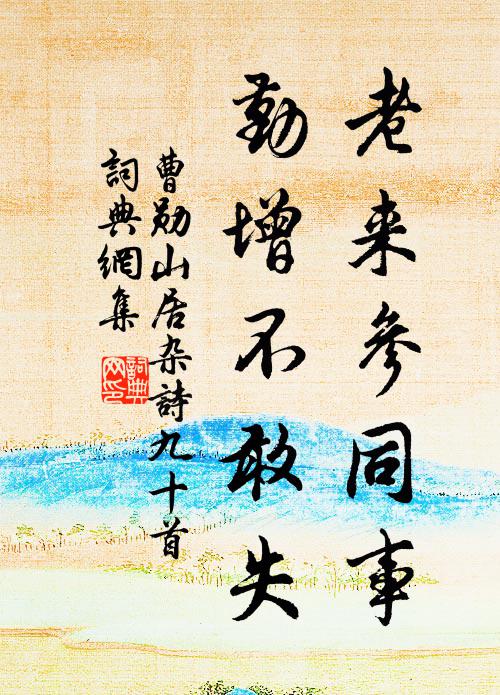 老来參同事
勤增不敢失
曹勋山居杂詩九十首
詞典網集
詞典網印